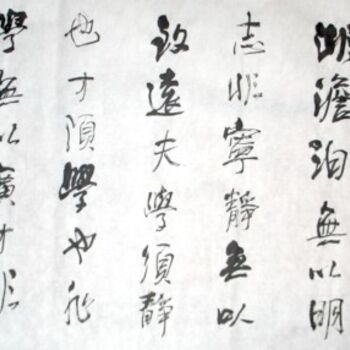 非澹泊無以明
志非寧靜無以
致遠夫學須靜
也才須學也非
學無以廣才非